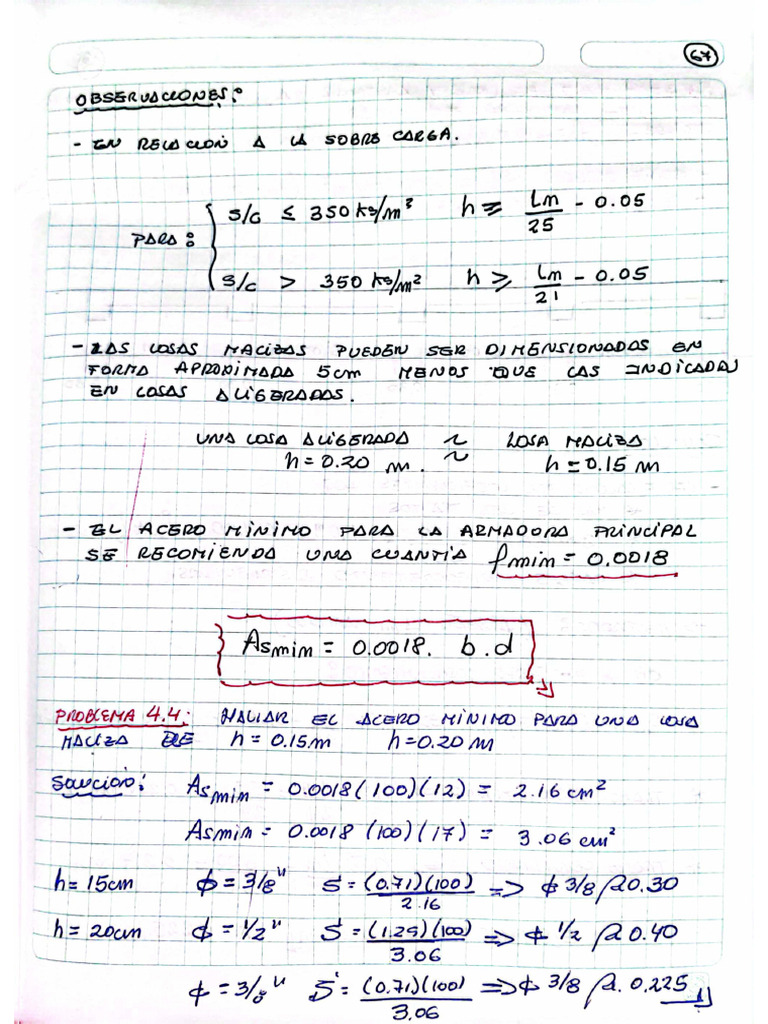 67
OBSERVACIONES:
- EN RELACION A LA SOBRE CARGA.
PARA: { s/c ≤ 350 kg/m² h ≥ Lm/25 - 0.05
s/c > 350 kg/m² h ≥ Lm/21 - 0.05
- LAS LOSAS MACIZAS PUEDEN SER DIMENSIONADAS EN
FORMA APROXIMADA 5cm MENOS QUE LAS INDICADAS
EN LOSAS ALIGERADAS.
UNA LOSA ALIGERADA ≈ LOSA MACIZA
h = 0.20 m. h = 0.15 m
- EL ACERO MINIMO PARA LA ARMADORA PRINCIPAL
SE RECOMIENDA UNA CUANTIA ρmin = 0.0018
Asmin = 0.0018. b.d
PROBLEMA 4.4: HALLAR EL ACERO MINIMO PARA UNA LOSA
MACIZA DE h = 0.15m h = 0.20 m
SOLUCIÓN: Asmin = 0.0018(100)(12) = 2.16 cm²
Asmin = 0.0018 (100)(17) = 3.06 cm²
h = 15cm φ = 3/8" S = (0.71)(100)/2.16 => φ 3/8 @ 0.30
h = 20cm φ = 1/2" S = (1.29)(100)/3.06 => φ 1/2 @ 0.40
φ = 3/8" S = (0.71)(100)/3.06 => φ 3/8 @. 0.225